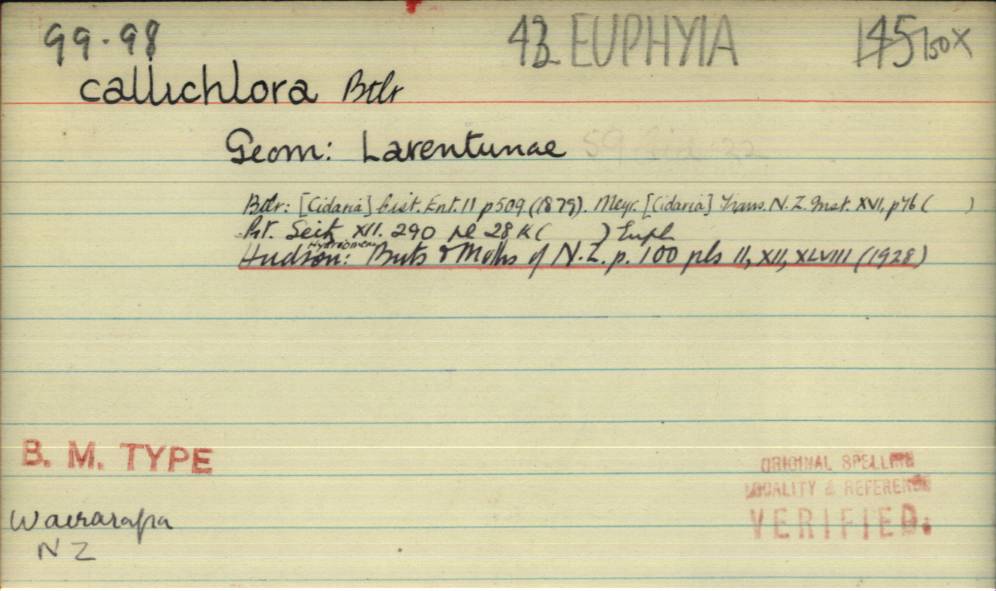 99.98 43 EUPHYIA 145 150X
callichlora Btlr
Geom: Larentiinae
Btlr: [Cidaria] Cist. Ent. II p509 (1879). Meyr. [Cidaria] Trans. N.Z. Inst. XVI, p76 ( )
Prt. Seitz XII. 290 pl 28 k ( ) Euph
Hydriomena
Hudson: Buts & Moths of N.Z. p. 100 pls II, XII, XLVIII (1928)
B. M. TYPE
ORIGINAL SPELLING
LOCALITY & REFERENCE
VERIFIED.
Wairarapa
N Z